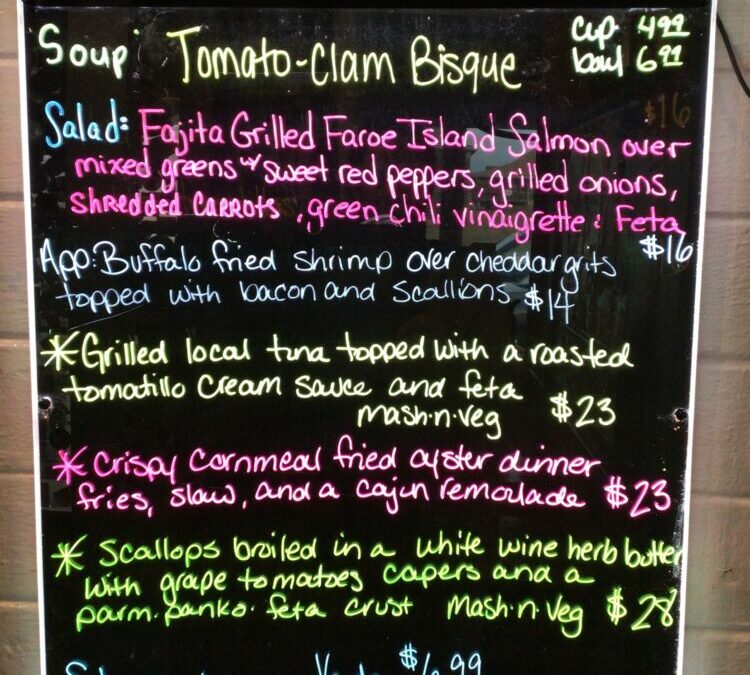 Soup: Tomato-Clam Bisque
cup 4.99
bowl 6.99
Salad: Fajita Grilled Faroe Island Salmon over
mixed greens w/ sweet red peppers, grilled onions,
shredded carrots, green chili vinaigrette & Feta
$16
App: Buffalo fried shrimp over cheddar grits
topped with bacon and scallions $14
*Grilled local tuna topped with a roasted
tomatillo cream sauce and feta
mash·n·veg $23
*Crispy Cornmeal fried oyster dinner
fries, slaw, and a cajun remoulade $23
*Scallops broiled in a white wine herb butter
with grape tomatoes capers and a
parm·panko·feta crust mash·n·veg $28
$6.99